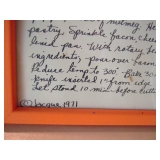 of nutmeg. Ho
pastry. Sprinkle bacon chee
lined pan. With rotary be
ingredients, pour over bacon
Reduce temp to 300 - Bake 30
knife inserted 1" from edge
Let stand 10 min. before cutti
(C) Jacque 1971